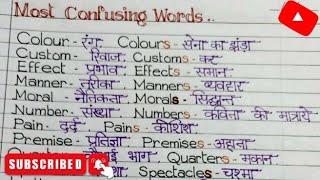 Most Confusing Words..
Colour - रंग Colours - सेना का झंडा
Custom - रिवाज Customs - कर
Effect - प्रभाव Effects - समान
Manner - तरीका Manners - व्यवहार
Moral - नैतिकता Morals - सिद्धान्त
Number - संख्या Numbers - कविता की मात्राये
Pain - दर्द Pains - कोशिश
Premise - प्रतिज्ञा Premises - अहाता
भाग Quarters - मकान
SUBSCRIBED Spectacles - चश्मा